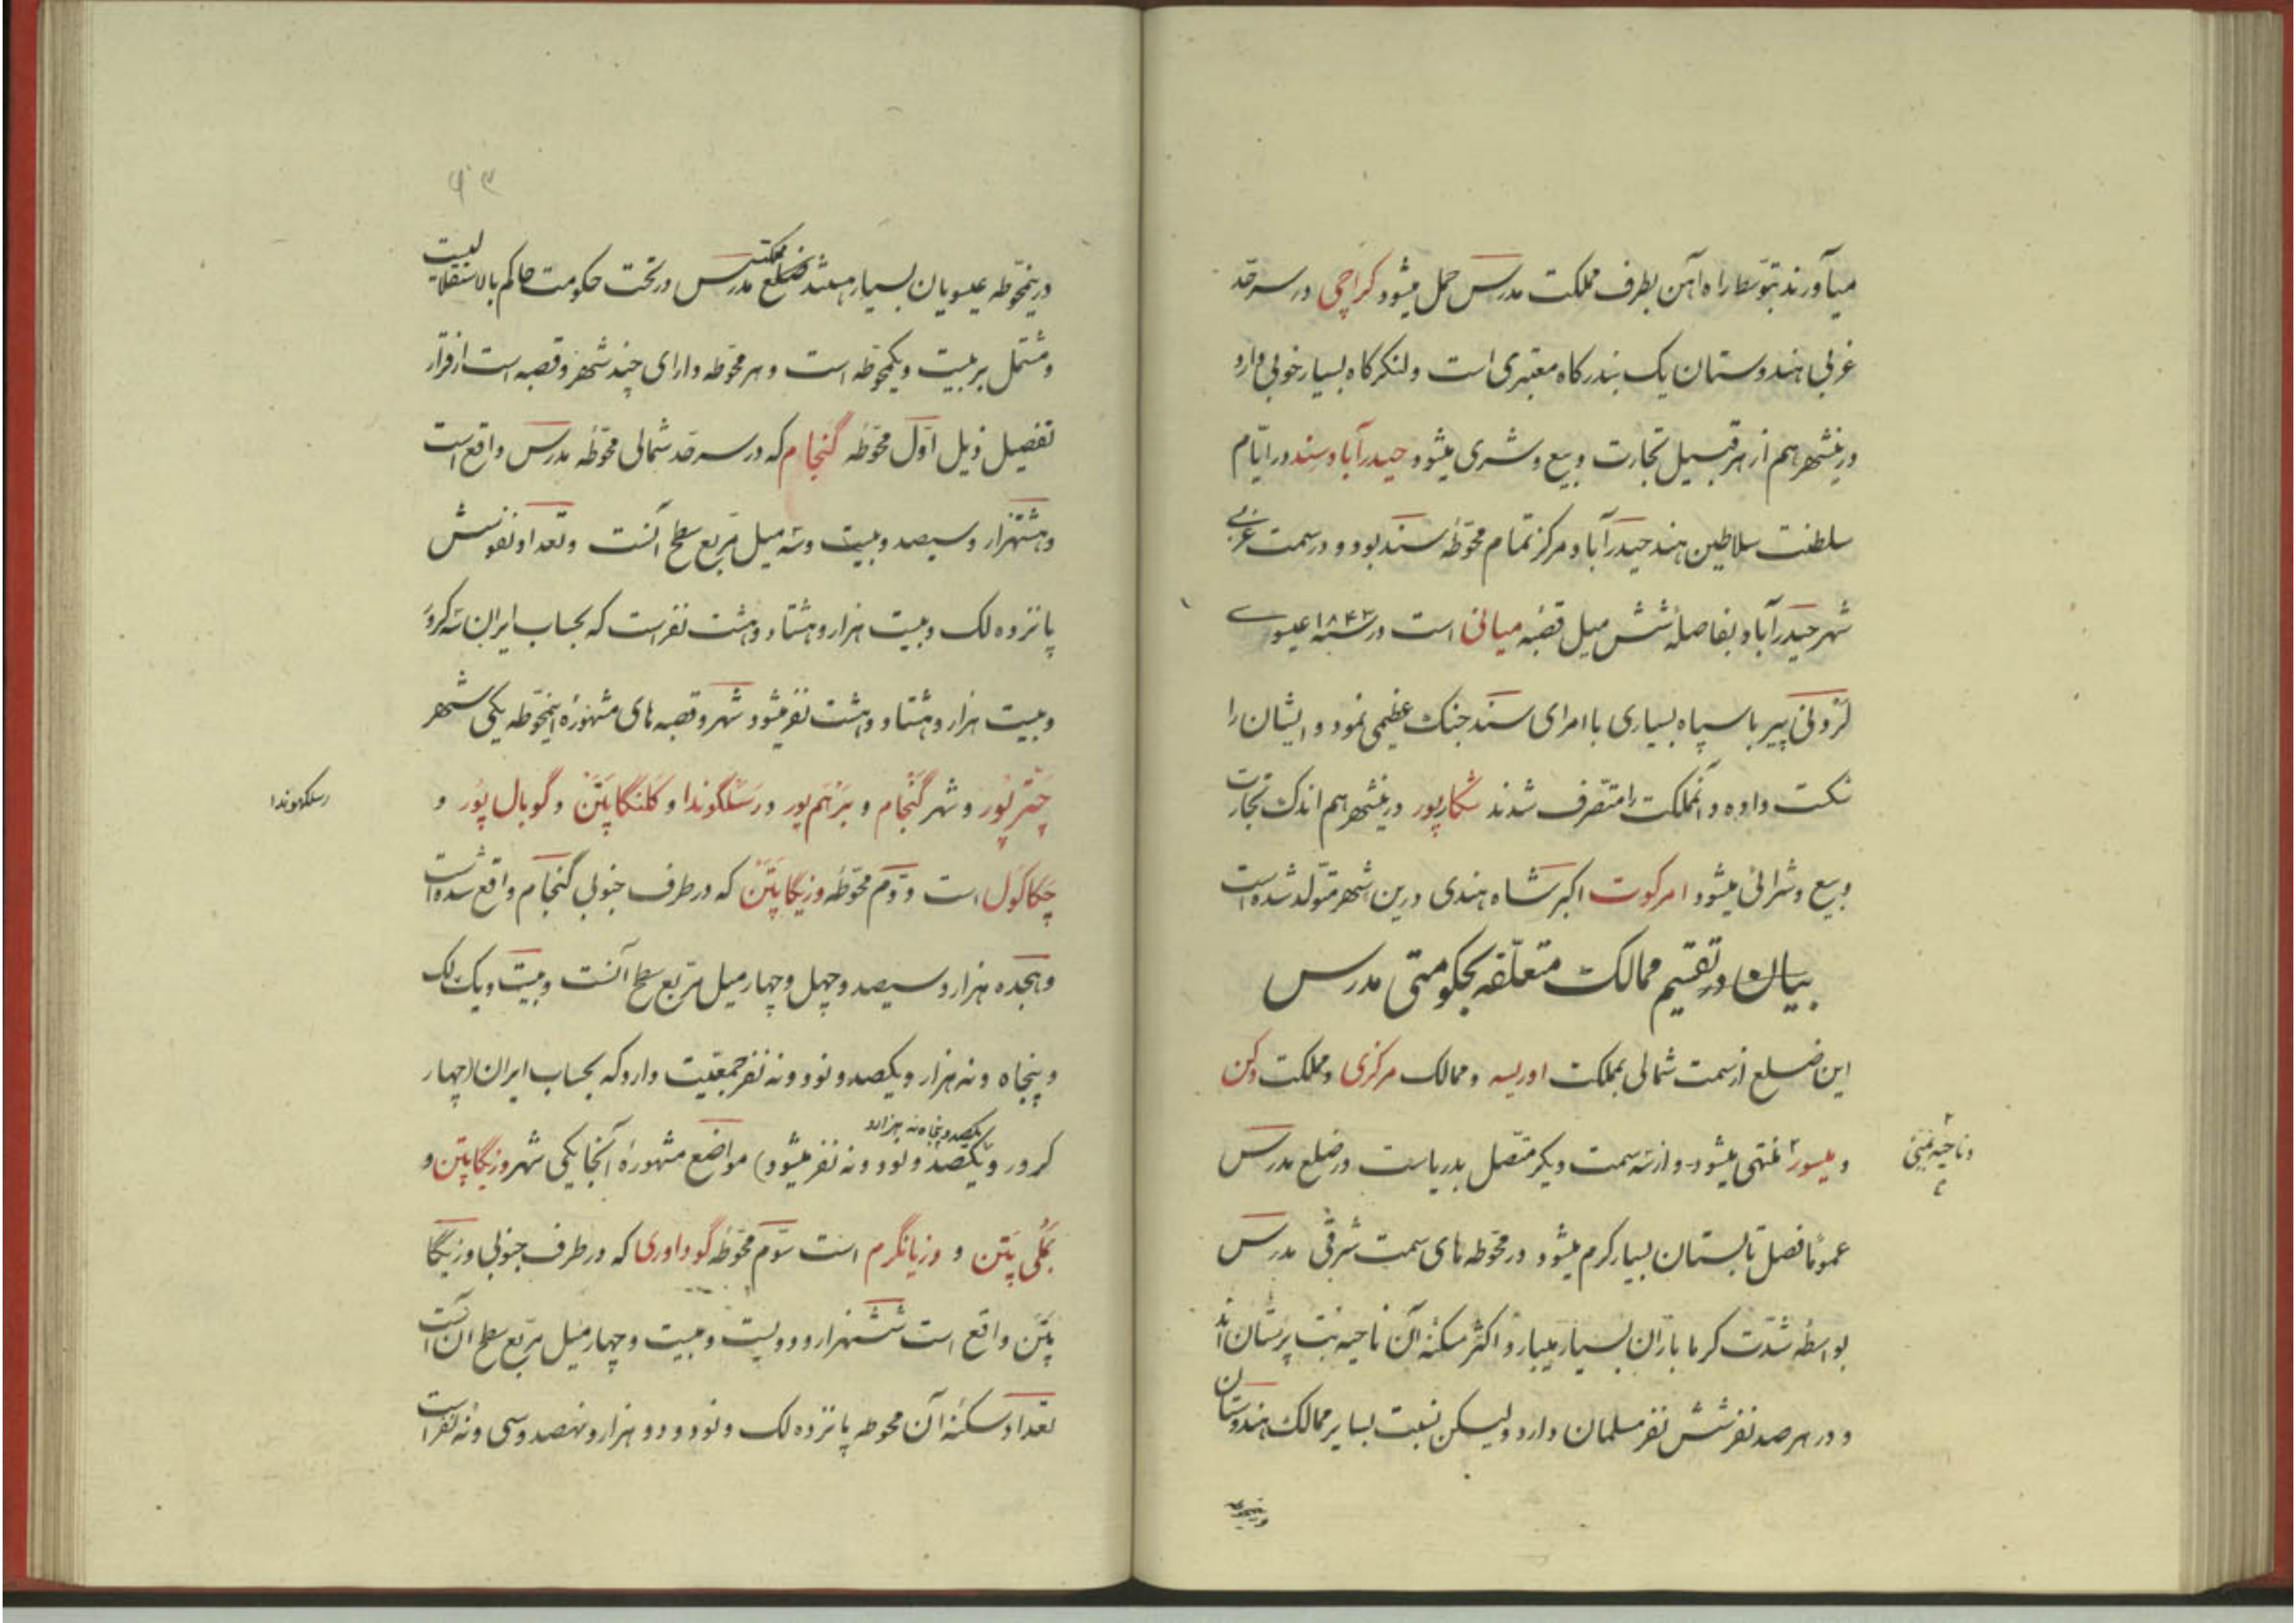 میآورند بتوسط راه آهن بطرف مملکت مدرس حمل میشود کراچی در سرحد
غربی هندوستان یک بندرکاه معتبری است و لنکرکاه بسیار خوبی دارد
درینشهر هم از هر قبیل تجارت و بیع و شری میشود حیدرآباد سند در ایّام
سلطنت سلاطین هند حیدرآباد مرکز تمام محوّطهٔ سند بود و در سمت غربی
شهر حیدرآباد بفاصلهٔ شش میل قصبهٔ میانی است در سنهٔ ۱۸۴۳ عیسوی
پیر با سپاه بسیاری با امرای سند جنک عظیمی نمود و ایشان را
شکست داده و آنمملکت را متصّرف شدند شکارپور درینشهر هم اندک تجارت
و بیع و شرائی میشود امرکوت اکبر شاه هندی درین شهر متولّد شده است
بیان در تقسیم ممالک متعلّقه بحکومتی مدرس
این ضلع از سمت شمالی بمملکت اوریسه و ممالک مرکزی و مملکت دکن
و میسور۲ منتهی میشود و از سه سمت دیکر متّصل بدریاست در ضلع مدرس
عموماً فصل تابستان بسیار کرم میشود در محوّطه های سمت شرقی مدرس
بواسطهٔ شدّت کرما باران بسیار میبارد و اکثر سکنهٔ آن ناحیه بت پرستان اند
و در هر صد نفر شش نفر مسلمان دارد ولیکن نسبت بسایر ممالک هندوستان
۹۳
درینمحوّطه عیسویان بسیار هستند مملکت مدرس در تحت حکومت حاکم بالاستقلالیست
و مشتمل بر بیست و یکمحوّطه است و هر محوّطه دارای چند شهر و قصبه است از قرار
تفصیل ذیل اوّل محوّطه گنجام که در سرحد شمالی محوّطهٔ مدرس واقع است
و هشتهزار و سیصد و بیست و سه میل مربّع سطح آنست و تعداد نفوسش
پانزده لک و بیست هزار و هشتاد و هشت نفر است که بحساب ایران سه کرور
و بیست هزار و هشتاد و هشت نفر میشود شهر و قصبه های مشهورهٔ اینمحوّطه یکی شهر
چترپور و شهر گنجام و برنهم پور و رسلگوندا و کلنگاپتن و گوبال پور و
رسلکهوندا
چکاکول است و دوّم محوّطهٔ وزیگاپتن که در طرف جنوبی گنجام واقع شده است
و هجده هزار و سیصد و چهل و چهار میل مربّع سطح آنست و بیست و یک لک
و پنجاه و نه هزار و یکصد و نود و نه نفر جمعیّت دارد که بحساب ایران (چهار
یکصد و پنجاه نه هزار و
کرور و یکصد و نود و نه نفر میشود) مواضع مشهورهٔ آنجا یکی شهر وزیگاپتن و
بملی پتن و وزیانگرم است سوّم محوّطهٔ گوداوری که در طرف جنوبی وزیگا
پتن واقع است ششهزار و دویست و بیست و چهار میل مربّع سطح آن است
تعداد سکنهٔ آن محوطه پانزده لک و نود و دو هزار و نهصد و سی و نه نفر است